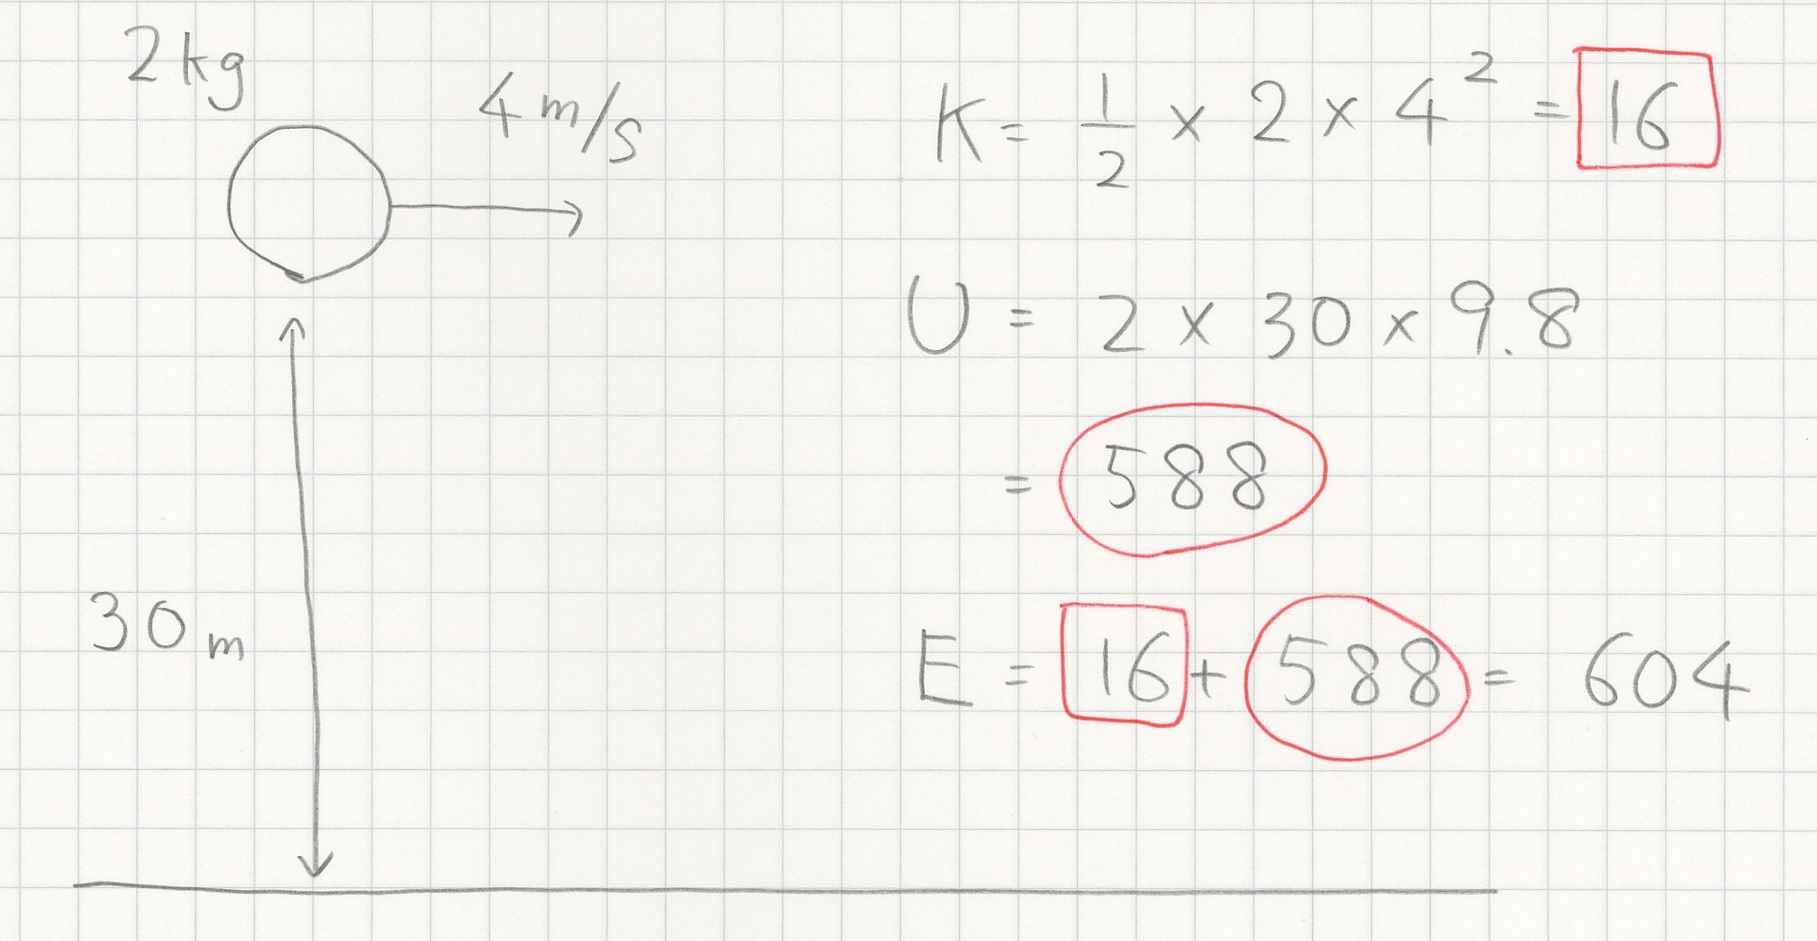 2kg
4 m/s
30 m
K = 1/2 × 2 × 4² = 16
U = 2 × 30 × 9.8
= 588
E = 16 + 588 = 604